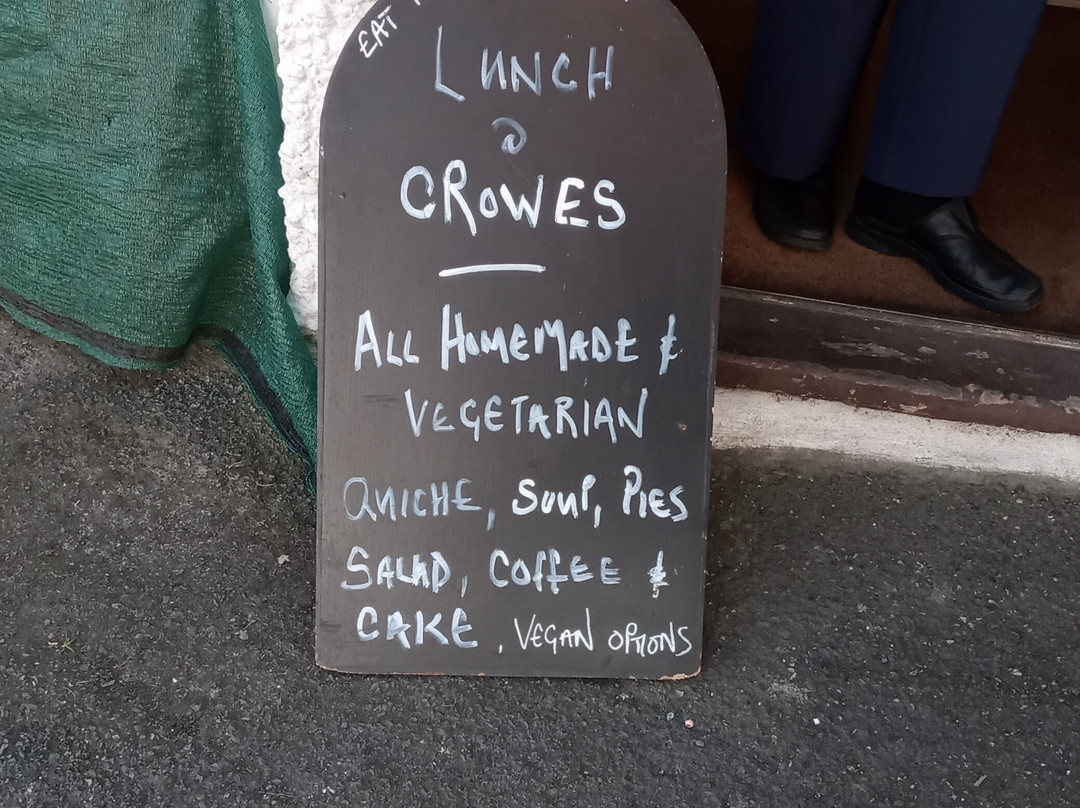 EAT
LUNCH
@
CROWES
ALL HOMEMADE &
VEGETARIAN
QUICHE, SOUP, PIES
SALAD, COFFEE &
CAKE, VEGAN OPTIONS